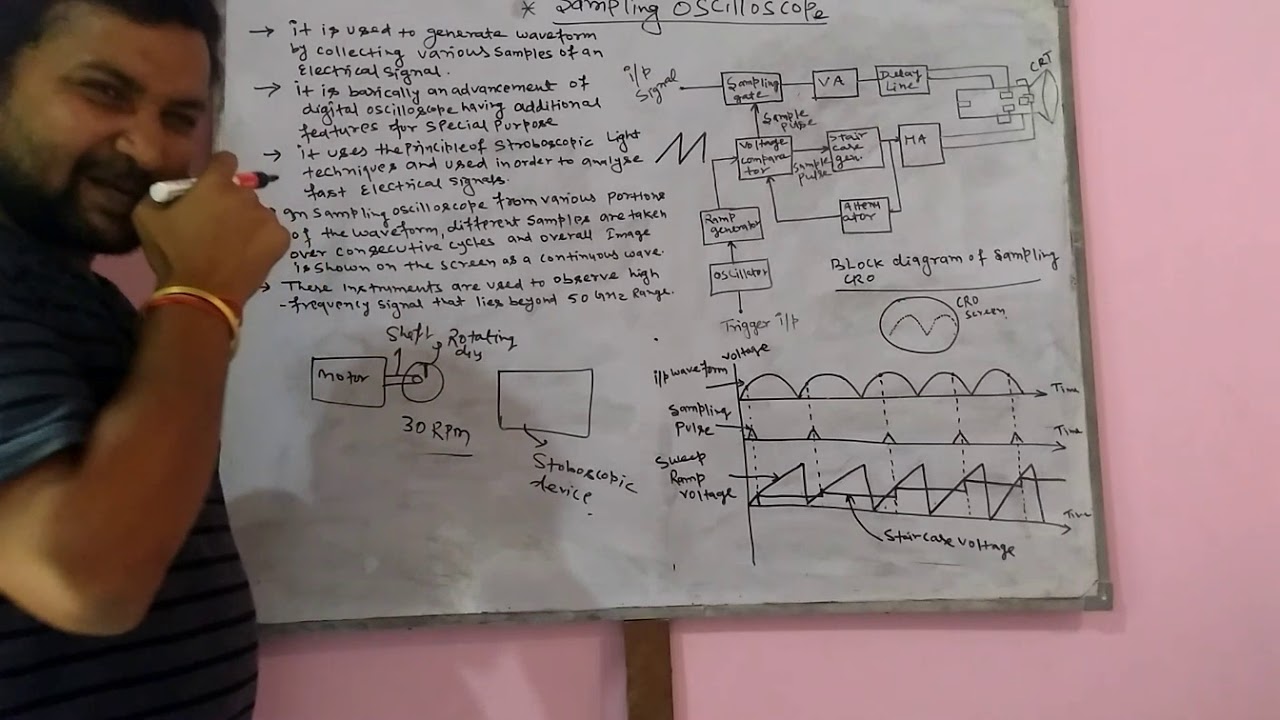 * Sampling OSCILLOSCOPE
→ it is used to generate waveform
by collecting various samples of an
Electrical Signal.
→ it is barically an advancement of
digital oscilloscope having additional
features for Special Purpose
→ it uses the Principle of Stroboscopic Light
techniques and used in order to analyse
fast Electrical Signals.
In Sampling oscilloscope from various Portions
of the waveform, different Samples are taken
over consecutive cycles and overall Image
is shown on the screen as a continuous wave.
→ These instruments are used to observe high
-frequency signal that lies beyond 50 GHz Range.
Shaft
Rotating
Motor
30 RPM
Stoboscopic
device
i/p
Signal
Sampling
gate
VA
Delay
Line
CRT
Sample
Pulse
Voltage
compara
tor
Sample
Pulse
Stair
case
gen.
HA
Attenu
ator
Ramp
generator
Oscillator
Trigger i/p
Block diagram of Sampling
CRO
CRO
Screen
voltage
i/p waveform
Time
Sampling
Pulse
Time
Sweep
Ramp
voltage
Time
Staircase voltage